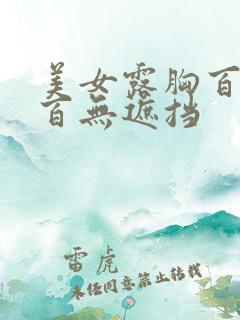 美女露胸百
百無遮挡
雷虎
未经同意禁止转载